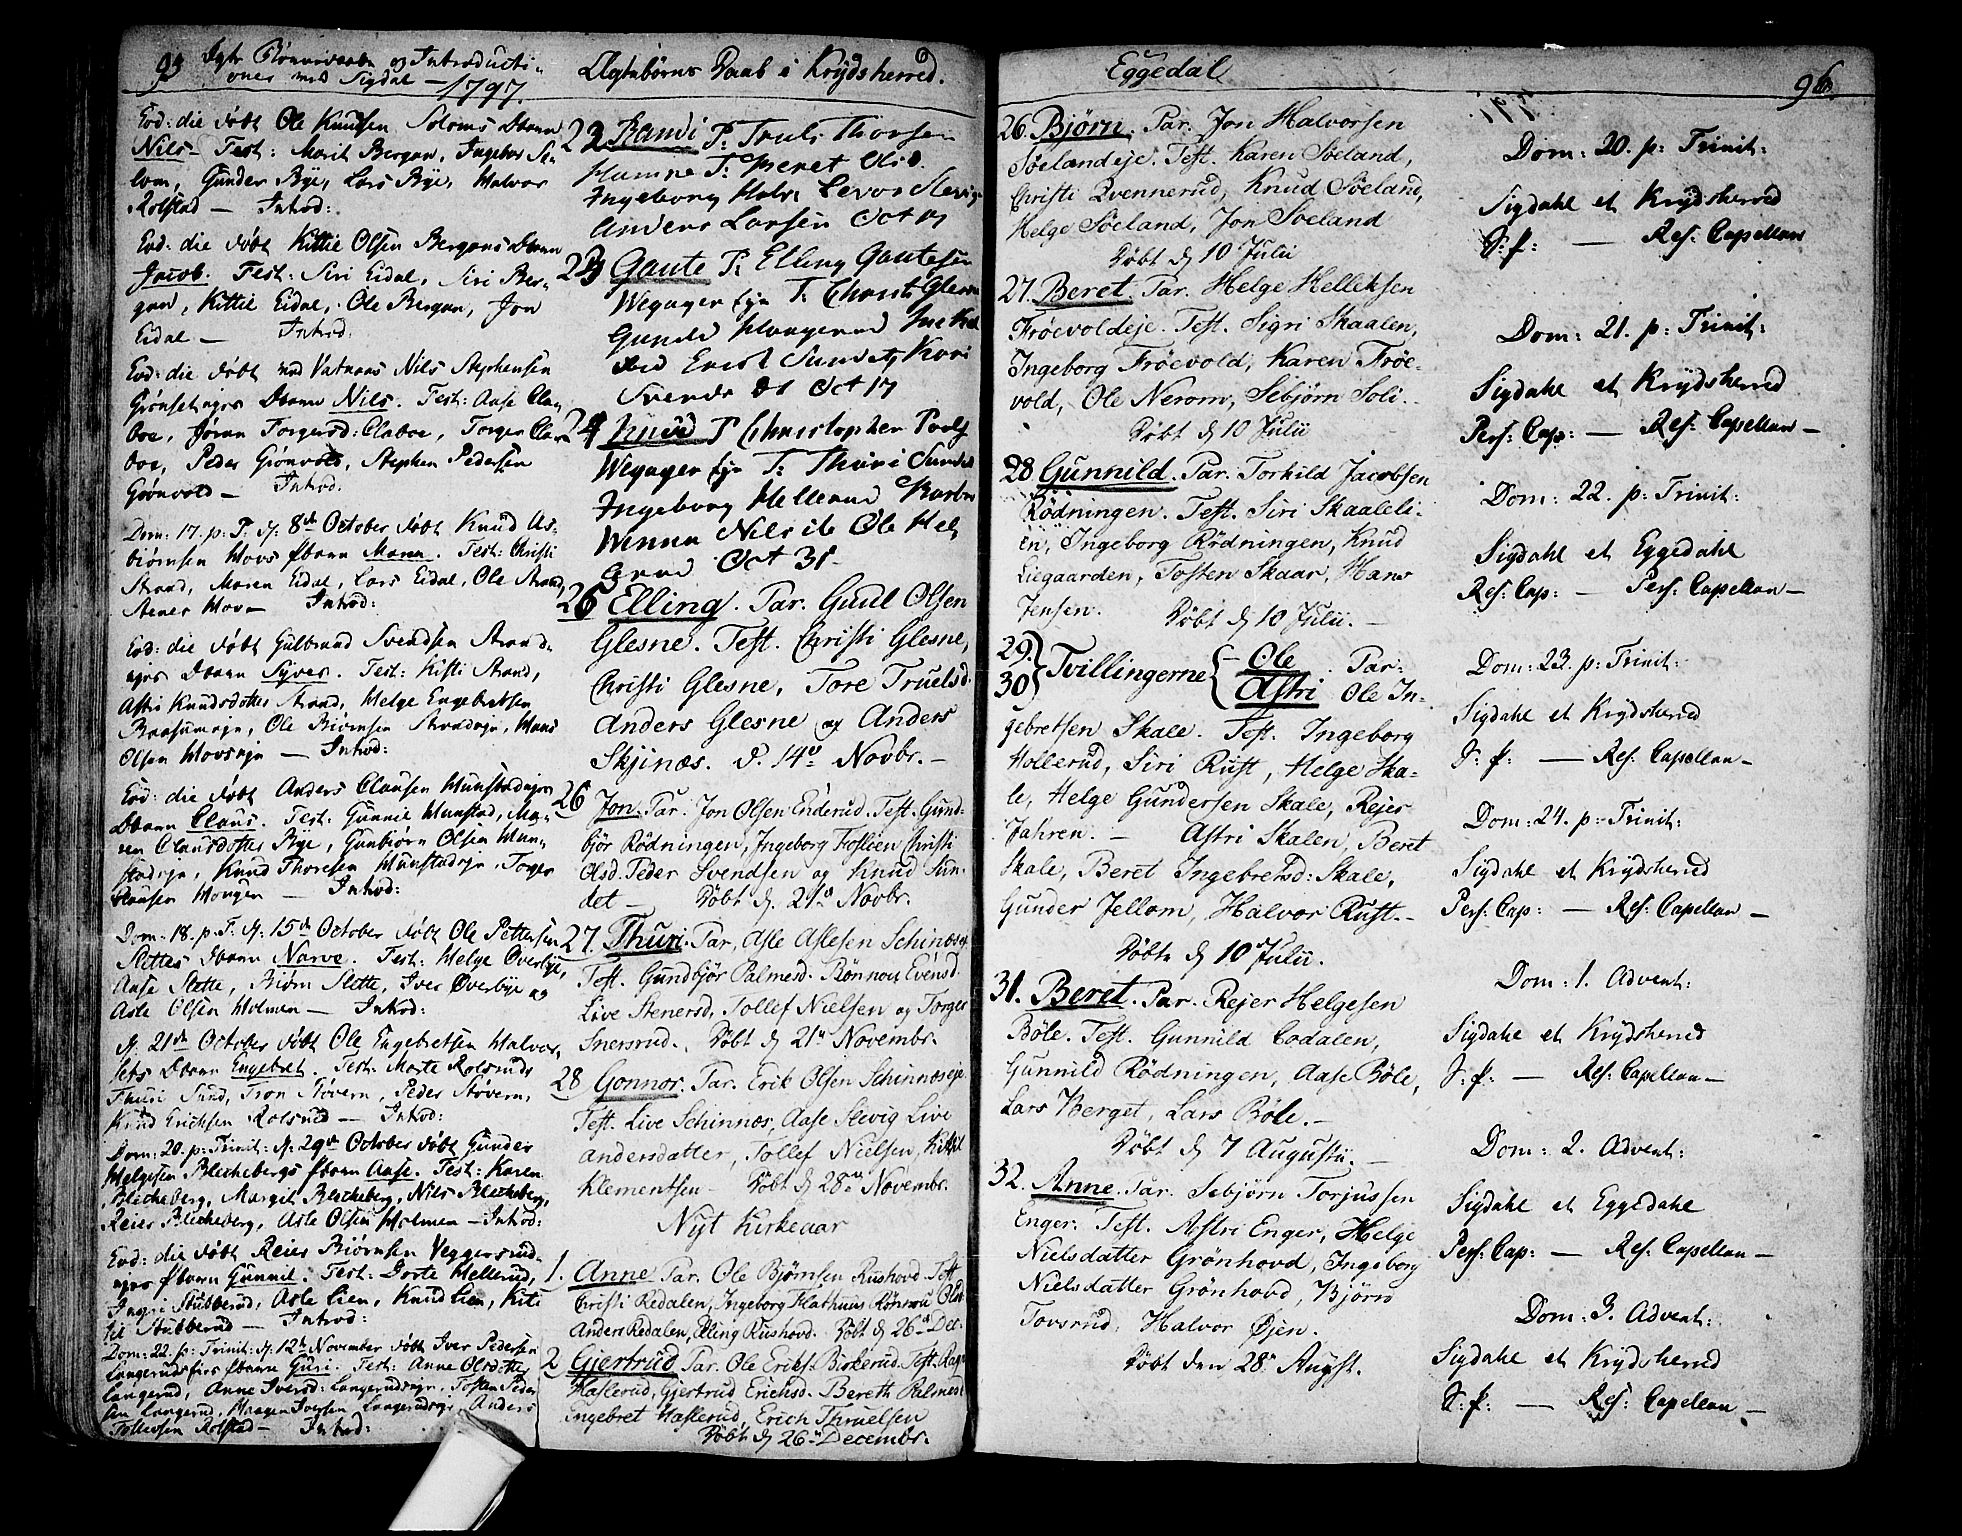 95 Egte Børnedaab og Introducti-
oner med Sigdal — 1797.
Eod: die døbt Ole Knudsen Soloms Dbarn
Nils — Test: Marit Bergan, Ingebor So-
lom, Gunder Bye, Lars Bye, Halvor
Rolstad — Introd:
Eod: die døbt Kittil Olsen Bergans Dbarn
Jacob. Test: Siri Eidal, Siri Ber-
gan, Kittil Eidal, Ole Bergan, Jon
Eidal — Introd:
Eod: die døbt Nils Stephensen
Dbarn Nils. Test: Aase Cla-
boe, Jøran Torgersd: Claboe, Torger Cla-
boe, Peder Grønvold, Stephen Pedersen
Grønvold — Introd:
Dom: 17. p: T. d: 8de October døbt Knud As-
biørnsen Hovs Pbarn Maren. Test: Christi
Strand, Maren Eidal, Lars Eidal, Ole Strand,
Stener Hov — Introd:
Eod: die døbt Gulbrand Svendsen Strand-
ejes Dbarn Syver. Test: Kisti Strand,
Astri Knudsdotter Strand, Helge Engebretsen
Ole Biørnsen Strandeje, Hans
Olsen Hovseje — Introd:
Eod: die døbt Anders Clausen Hunstadejes
Dbarn Claus. Test: Gunnil Hunstad, Ma-
ren Clausdotter Bye, Gunbiørn Olsen Hun-
stadeje, Knud Thoresen Hunstadeje, Torger
Clausen Hougen — Introd:
Dom: 18. p. T. d: 15de October døbt Ole Pettersen
Slettes Dbarn Narve. Test: Helge Overbye,
Aase Slette, Biørn Slette, Iver Overbye og
Asle Olsen Holmen — Introd:
d. 21de October døbt Ole Engebretsen Halvor-
sets Dbarn Engebret. Test: Marte Rolsruds
Thuri Sund, Tron Støvern, Peder Støvern,
Knud Erichsen Rolsrud — Introd:
Dom: 20. p: Trinit: d: 29de October døbt Gunder
Helgesen Blichebergs Pbarn Aase. Test: Karen
Blicheberg, Margit Blicheberg, Nils Blicheberg,
Reier Blicheberg, Asle Olsen Holmen — Introd:
Eod: die døbt Reier Biørnsen Veggersrud-
ejes Pbarn Gunnil. Test: Dorte Hellerud,
Ingri Stubberud, Asle Lien, Knud Lien, Kit-
til Stubberud — Introd:
Dom: 22. p: Trinit: d: 12te November døbt Iver Pedersen
Langerudsejes Pbarn Guri. Test: Anne Olsdotter
Langerud, Anne Iversd: Langerudseje, Tosten Peder-
sen Langerud, Haagen Iversen Langerudseje, Anders
Tollefsen Rolstad — Introd:
Ægtebørns Daab i Krydsherred.
23 Randi P: Truls Thorsen
Hamne T: Beret Olsd
Ingeborg Halv: Levor Slevig
Anders Larsen Oct 17
24 Gaute P: Elling Gautesen
Wegager eje T: Christi Glesne
Gunild
Erich Sundet Kari
Svends Dt Oct 17
24 Knud P Christopher Povls
Wegager eje T: Thuri Sundet
Ingeborg Hellerud
Nils Ole Hel-
lerud Oct 31.
26 Elling. Par. Gunl Olsen
Glesne. Test. Christi Glesne,
Christi Glesne, Tore Truelsd.
Anders Glesne og Anders
Skjinæs. d. 14de Novbr. —
26 Jon. Par. Jon Olsen Enderud. Test. Gund-
bjør Rödningen, Ingeborg Foslien Christi
Olsd. Peder Svendsen og Knud Sun-
det — Döbt d. 21de Novbr.
27. Thuri. Par. Asle Aslesen Schinnæseje
Test. Gundbjör Palmesd. Rönnou Evensd.
Live Stenersd, Tollef Nielsen og Torger
Snersrud. Döbt d 21de Novembr.
28 Gonnor. Par. Erik Olsen Schinnæseje
Test. Live Schinnæs, Aase Slevig Live
andersdatter, Tollef Nielsen, Kittil
Klementsen — Döbt d 28de Novembr.
Nyt Kirkeaar
1. Anne Par. Ole Björnsen Rushovd Test
Christi Redalen, Ingeborg Flathuus Rönnou Olsd
Anders Redalen, Elling Rushovd. Döbt d 26de Dec:
2 Gjertrud Par. Ole Eriks. Birkerud. Test. Rag
Haslerud, Gjertrud Erichsd. Bereth Palmesd
Ingebret Haslerud, Erich Thruelsen
Döbt d 26de Decembr.
Eggedal
96.
26. Bjørn. Par. Jon Halvorsen
Søelandeje. Test. Karen Søeland,
Christi Qvennerud, Knud Søeland,
Helge Søeland, Jon Søeland
Døbt d 10 Julii
27. Beret. Par. Helge Helleksen
Frøevoldeje. Test. Sigri Skaalen,
Ingeborg Frøevold, Karen Frøe-
vold, Ole Nerom, Sebjørn Soli.
Døbt d 10 Julii
28 Gunnild. Par. Torkild Jacobsen
Rødningen. Test. Siri Skaaleli-
en, Ingeborg Rødningen, Knud
Liegaarden, Tosten Skaar, Hans
Jensen. Døbt d 10 Julii. —
29.
30 } Tvillingerne { Ole
Astri . Par.
Ole In-
gebretsen Skale. Test. Ingeborg
Hollerud, Siri Rust, Helge Ska-
le, Helge Gundersen Skale, Rejer
Jahren. — Astri Skalen, Beret
Skale, Beret Ingebretsd: Skale,
Gunder Jellom, Halvor Rust. —
Døbte d 10 Julii.
31. Beret. Par. Rejer Helgesen
Bøle. Test. Gunnild Codalen,
Gunnild Rødningen, Aase Bøle,
Lars Berget, Lars Bøle. —
Døbt d 7 Augustii. —
32. Anne. Par. Sebjørn Torjussen
Enger: Test. Astri Enger, Helge
Nielsdatter Grønhovd, Ingeborg
Nielsdatter Grønhovd, Bjørn
Tovsrud, Halvor Øjen.
Døbt den 28de Augst.
Dom: 20. p: Trinit:
Sigdahl et Krydsherred
S: p: — Res: Capellan
Dom: 21. p: Trinit:
Sigdahl et Krydsherred
Pers: Cap: — Res: Capellan —
Dom: 22. p: Trinit:
Sigdahl et Eggedahl
Res: Cap: — Pers: Capellan —
Dom: 23. p: Trinit:
Sigdahl et Krydsherred
S: p: — Res: Capellan —
Dom: 24. p: Trinit:
Sigdahl et Krydsherred
Pers: Cap: — Res: Capellan —
Dom: 1. Advent:
Sigdahl et Krydsherred
S: p: — Res: Capellan —
Dom: 2. Advent:
Sigdahl et Eggedahl
Pers: Cap: — Res: Capellan —
Dom: 3. Advent:
Sigdahl et Krydsherred
S: p: — Res: Capellan —